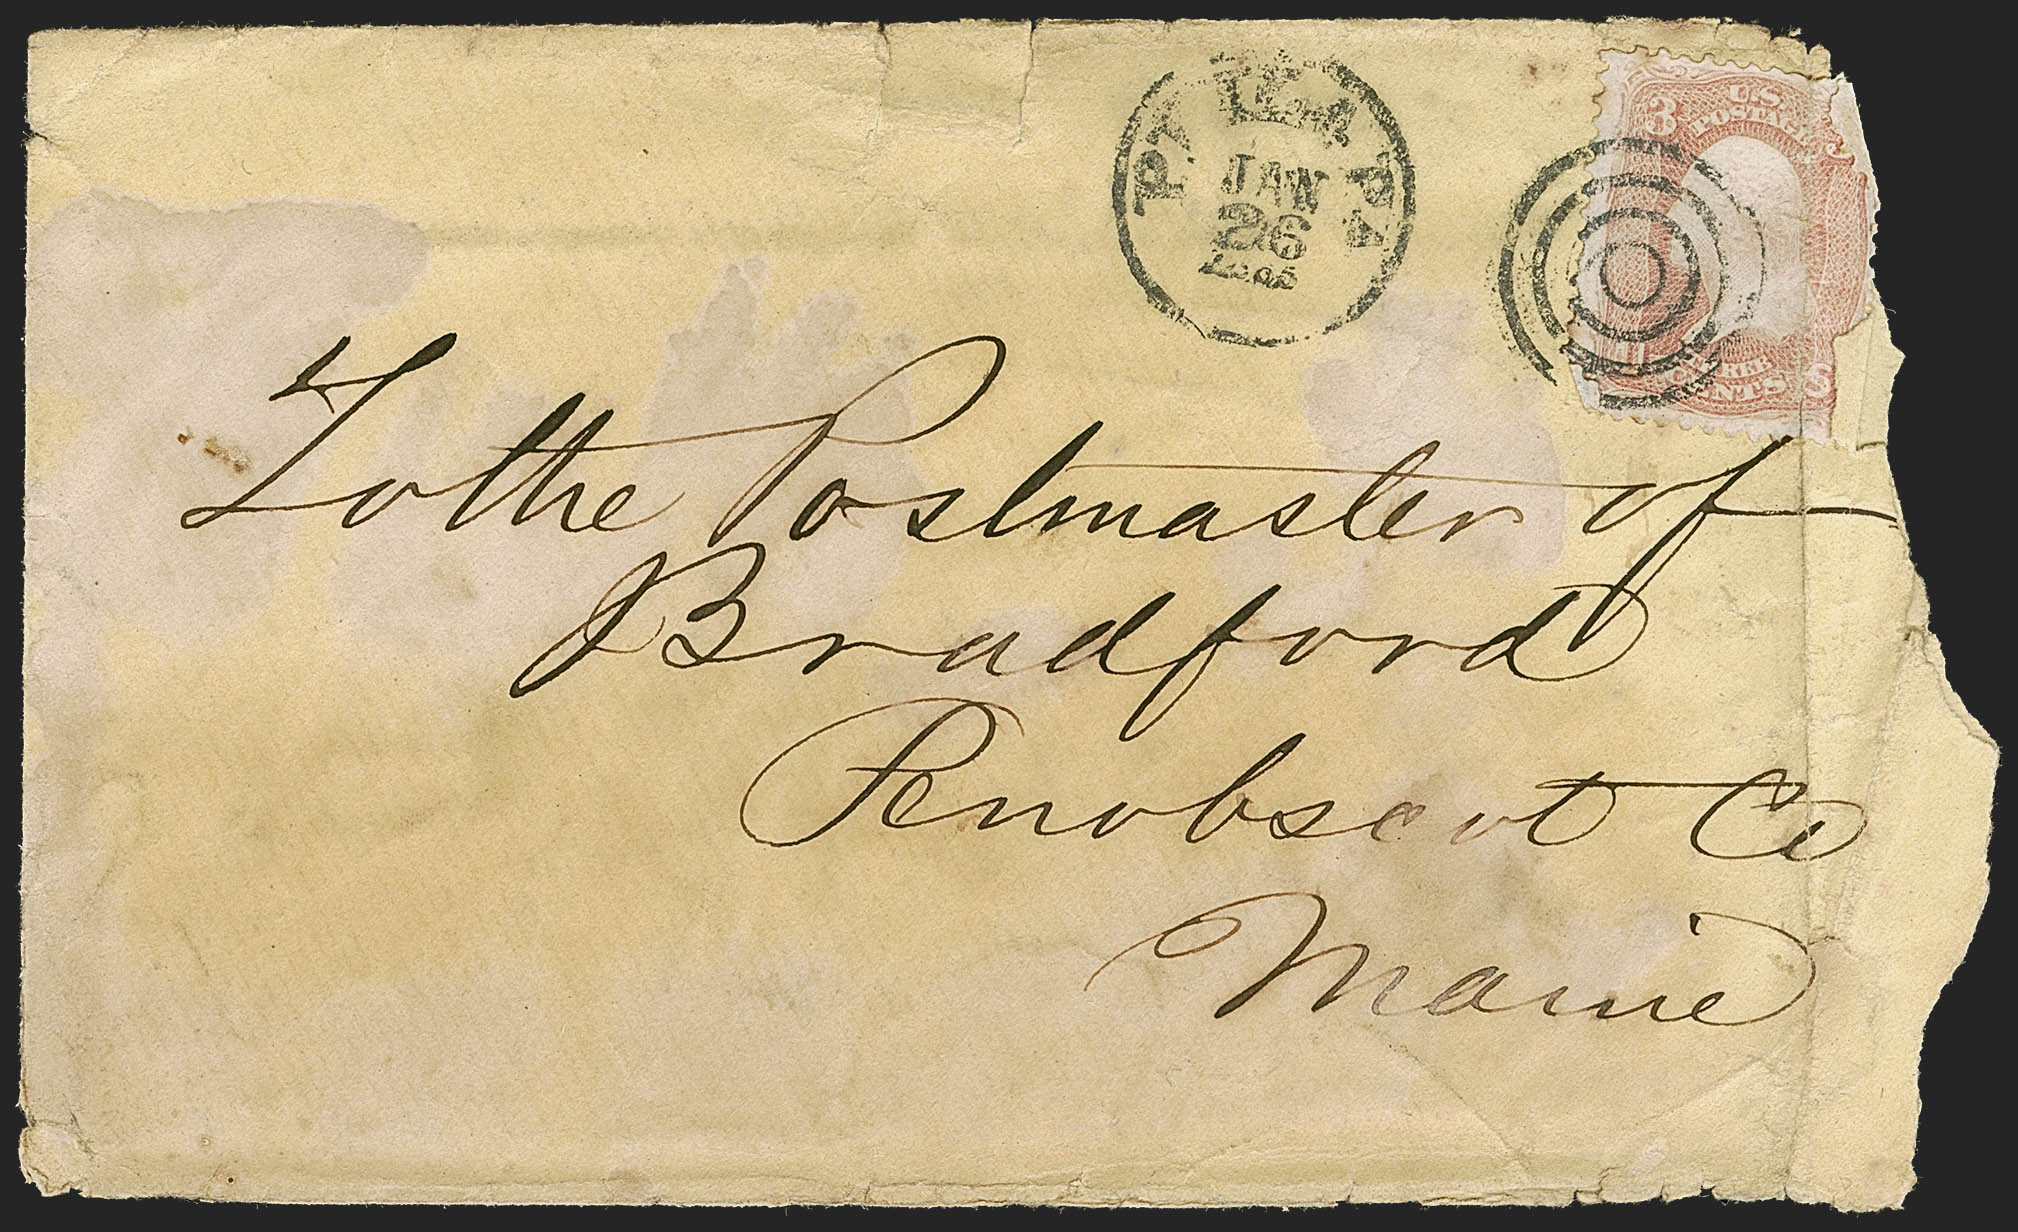 PHILA PA
JAN
26
1865
3 U.S. POSTAGE
THREE CENTS
To the Postmaster of
Bradford
Penobscot Co
Maine